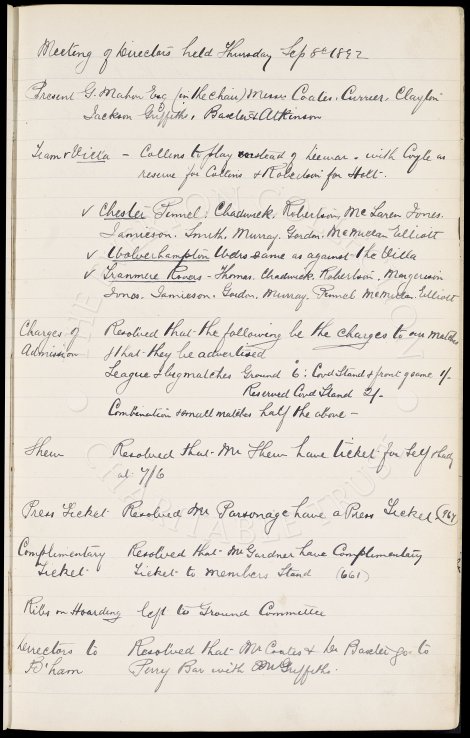 Meeting of Directors held Thursday Sep 8th 1892
Present G. Mahon Esq (in the chair) Messrs Coates, Currier, Clayton
Jackson Griffiths, Baxter & Atkinson
Team v Villa - Collins to play instead of with Coyle as
reserve for Collins & Robertson for Holt.
v Chester Pinnel, Chadwick, Robertson, McLaren Jones.
Jamieson. Smith, Murray, Gordon, McMillan Elliott
v Wolverhampton Wdrs same as against the Villa
v Tranmere Rovers - Thomas. Chadwick. Robertson. Margerison
Jones. Jamieson. Gordon, Murray. Pinnel McMillan, Elliott
Charges of Resolved that the following be the charges to our matches
Admission & that they be advertised
League & big matches Ground 6: Covd Stand & front game 1/-
Reserved Covd Stand 2/-
Combination & small matches half the above -
Resolved that Mr have ticket for self & lady
at 7/6
Press Ticket Resolved Mr Parsonage have a Press Ticket (964)
Complimentary Resolved that Mr Gardner have Complimentary
Ticket Ticket to Members Stand (661)
on Hoarding left to Ground Committee
Directors to Resolved that Mr Coates & Dr Baxter go to
B'ham Perry Bar with Mr Griffiths.